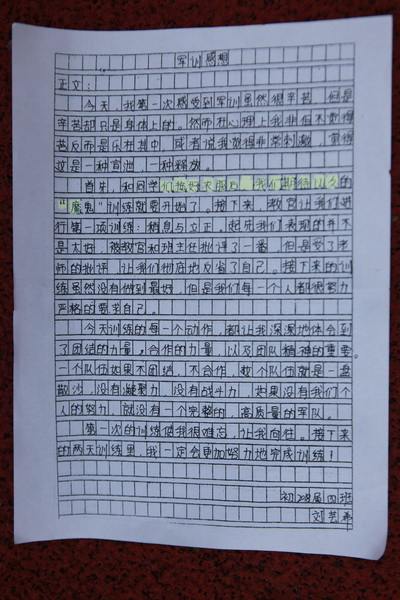 军训感想
正文:
今天,我第一次感受到军训虽然很辛苦,但是
辛苦却只是身体上的。然而在心理上我非但不觉得
苦反而是乐在其中,或者说我觉得非常刺激,觉得
这是一种宣泄,一种释放。
首先,和同学们搞好衣服后,我们期待以久的
“魔鬼”训练就要开始了。接下来,教官让我们进
行第一项训练:稍息与立正。起先我们表现的并不
是太好,被教官和班主任批评了一番,但是受了老
师的批评,让我们彻底地反省了自己。接下来的训
练虽然没有做到最好,但是我们每一个人都很努力,
严格的要求自己。
今天训练的每一个动作,都让我深深地体会到
了团结的力量,合作的力量,以及团队精神的重要。
一个队伍如果不团结,不合作,整个队伍就是一盘
散沙,没有凝聚力,没有战斗力,如果没有我们个
人的努力,就没有一个完整的,高质量的军队。
第一次的训练使我很难忘,让我向往。接下来
的两天训练里,我一定会更加努力地完成训练!
初208届四班
刘艺